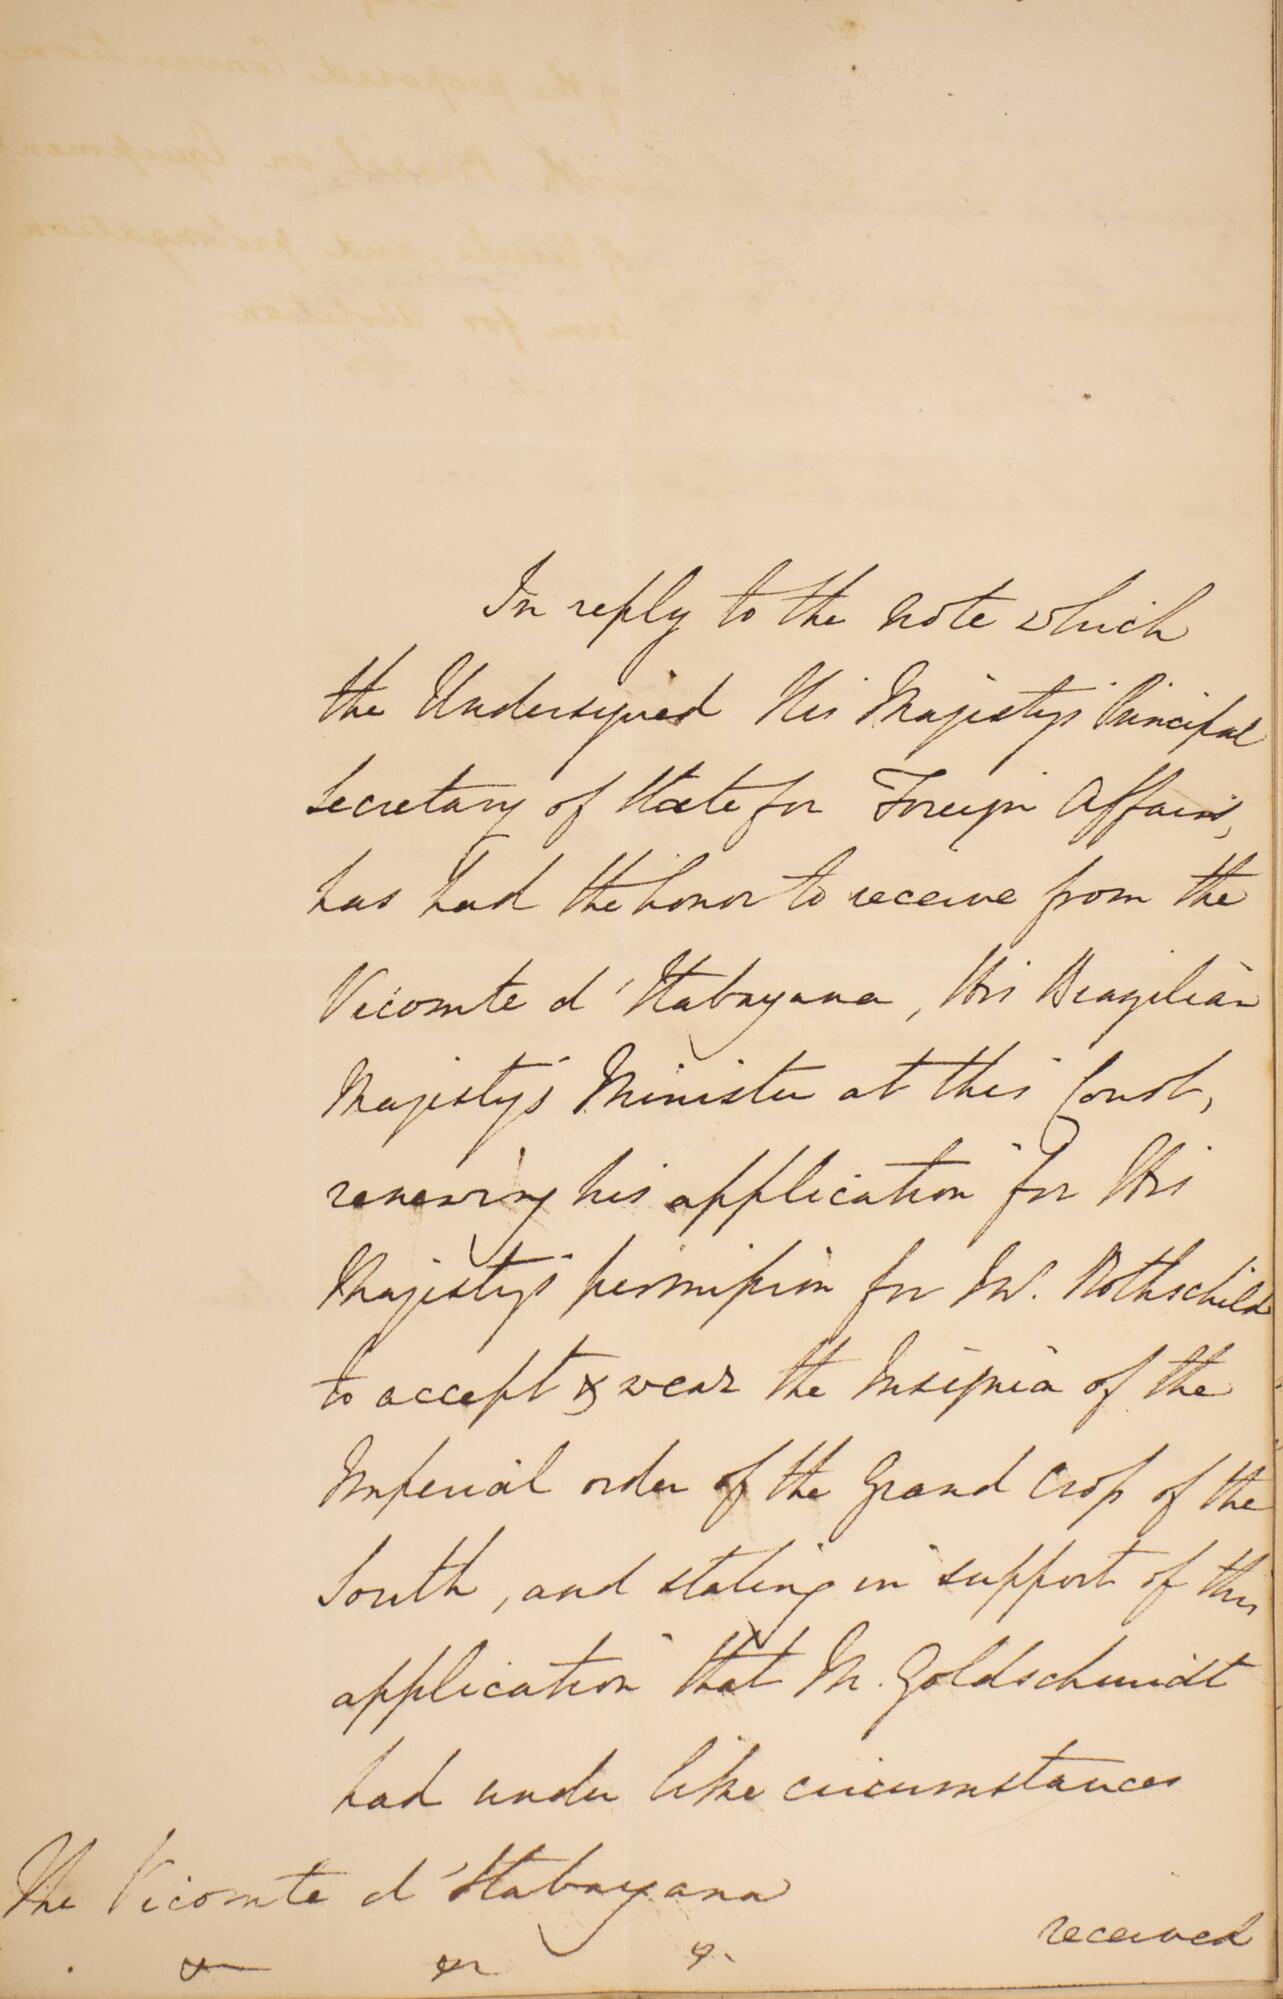 In reply to the note which
the Undersigned His Majesty's Principal
Secretary of State for Foreign Affairs,
has had the honor to receive from the
Vicomte d'Itabayana, His Brazilian
Majesty's Minister at this Court,
renewing his application for His
Majesty's permission for Mr. Rothschild
to accept & wear the Insignia of the
Imperial order of the Grand Cross of the
South, and stating in support of this
application that M. Goldschmidt
had under like circumstances
The Vicomte d'Itabayana
received
&c &c &c